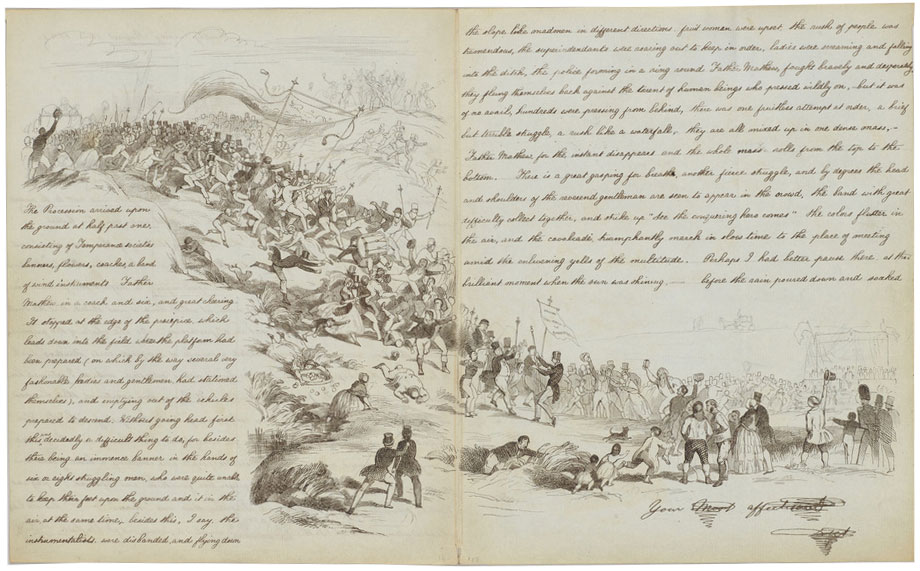 The Procession arrived upon
the ground at half past one,
consisting of Temperance societies
banners, flowers, coaches, a band
of wind instruments Father
Mathew in a coach and six, and great cheering
It stopped at the edge of the precipice which
leads down into the field where the platform had
been prepared (on which by the way several very
fashionable ladies and gentlemen had stationed
themselves), and emptying out of the vehicles
prepared to descend. Without going head first
this was decidedly a difficult thing to do, for besides
there being an immence banner in the hands of
six or eight struggling men, who were quite unable
to keep their feet upon the ground and it in the
air at the same time, besides this, I say, the
instrumentalists were disbanded, and flying down
the slope like madmen in different directions fruit women were upset the rush of people was
tremendous, the superintendants were roaring out to keep in order, ladies were screaming and falling
into the ditch, the police forming in a ring round Father Mathew fought bravely and desperately
they flung themselves back against the torrent of human beings who pressed wildly on, but it was
of no avail, hundreds were pressing from behind, there was one fruitless attempt at order, a brief
but terrible struggle, a rush like a waterfall, they are all mixed up in one dense mass,—
Father Mathew for the instant disappears and the whole mass rolls from the top to the
bottom. There is a great gasping for breath, another fierce struggle, and by degrees the head
and shoulders of the reverend gentleman are seen to appear in the crowd, the band with great
difficulty collect together, and strike up "See the conquering hero comes" the colors flutter in
the air, and the cavalcade triumphantly march in slow time to the place of meeting
amid the enlivening yells of the multitude. Perhaps I had better pause here at this
brilliant moment when the sun was shining before the rain poured down and soaked
Your Most affectionate